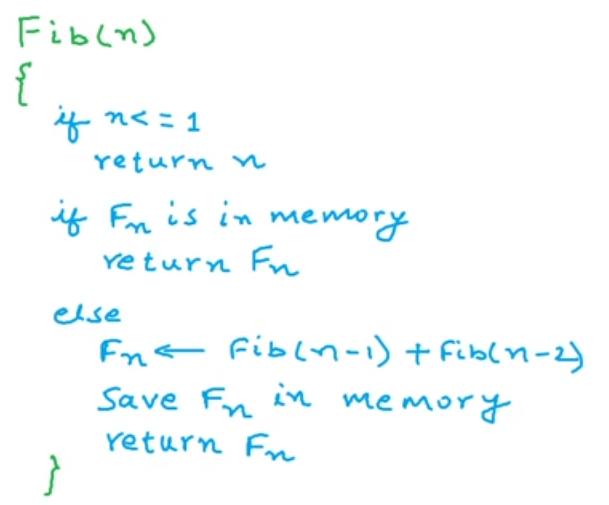 Fib(n)
{
if n<=1
return n
if Fn is in memory
return Fn
else
Fn ← Fib(n-1) + Fib(n-2)
Save Fn in memory
return Fn
}